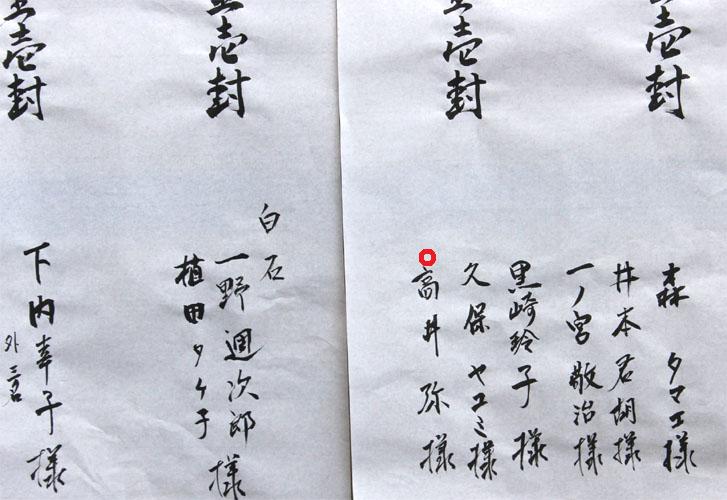 壱封
森 タマエ様
井本君胡様
一ノ宮敬治様
黒崎玲子様
壱封
久保ヤユミ様
高井 弥様
壱封
白石
一野週次郎様
植田タケ子
壱封
下内幸子様
外三名